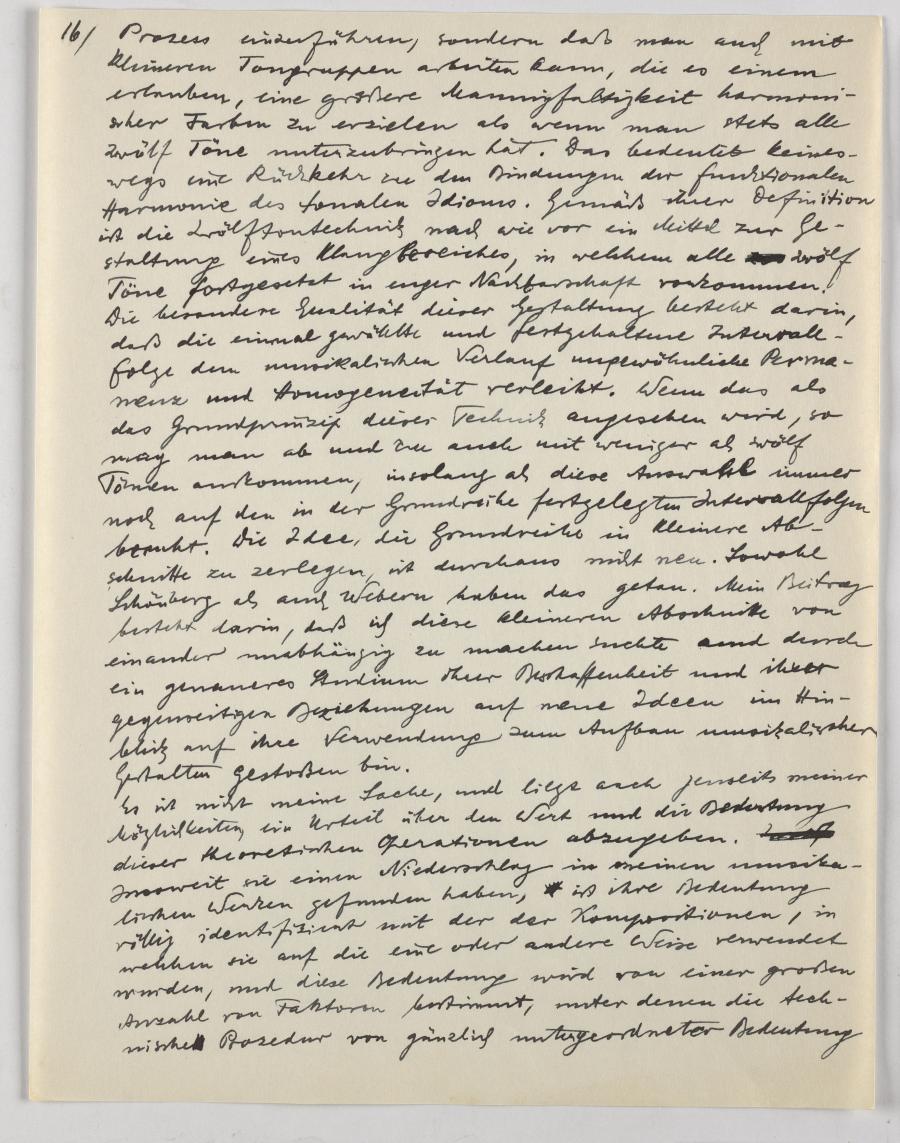 16/ Prozess einzuführen, sondern daß man auch mit
kleineren Tongruppen arbeiten kann, die es einem
erlauben, eine größere Mannigfaltigkeit harmoni-
scher Farben zu erzielen als wenn man stets alle
zwölf Töne unterzubringen hat. Das bedeutet keines-
wegs eine Rückkehr zu den Bindungen der funktionalen
Harmonie des tonalen Idioms. Gemäß ihrer Definition
ist die Zwölftontechnik nach wie vor ein Mittel zur Ge-
staltung eines Klangbereiches, in welchem alle zwölf
Töne fortgesetzt in enger Nachbarschaft vorkommen.
Die besondere Qualität dieser Gestaltung besteht darin,
daß die einmal gewählte und festgehaltene Intervall-
folge dem musikalischen Verlauf ungewöhnliche Perma-
nenz und Homogeneität verleiht. Wenn das als
das Grundprinzip dieser Technik angesehen wird, so
mag man ab und zu auch mit weniger als zwölf
Tönen auskommen, insolang als diese Auswahl immer
noch auf den in der Grundreihe festgelegten Intervallfolgen
beruht. Die Idee, die Grundreihe in kleinere Ab-
schnitte zu zerlegen, ist durchaus nicht neu. Sowohl
Schönberg als auch Webern haben das getan. Mein Beitrag
besteht darin, daß ich diese kleineren Abschnitte von
einander unabhängig zu machen suchte und durch
ein genaueres Studium ihrer Beschaffenheit und ihrer
gegenseitigen Beziehungen auf neue Ideen im Hin-
blick auf ihre Verwendung zum Aufbau musikalischer
Gestalten gestoßen bin.
Es ist nicht meine Sache, und liegt auch jenseits meiner
Möglichkeiten, ein Urteil über den Wert und die Bedeutung
dieser theoretischen Operationen abzugeben.
Insoweit sie einen Niederschlag in meinen musika-
lischen Werken gefunden haben, ist ihre Bedeutung
völlig identifiziert mit der der Kompositionen, in
welchen sie auf die eine oder andere Weise verwendet
wurden, und diese Bedeutung wird von einer großen
Anzahl von Faktoren bestimmt, unter denen die tech-
nische Prozedur von gänzlich untergeordneter Bedeutung